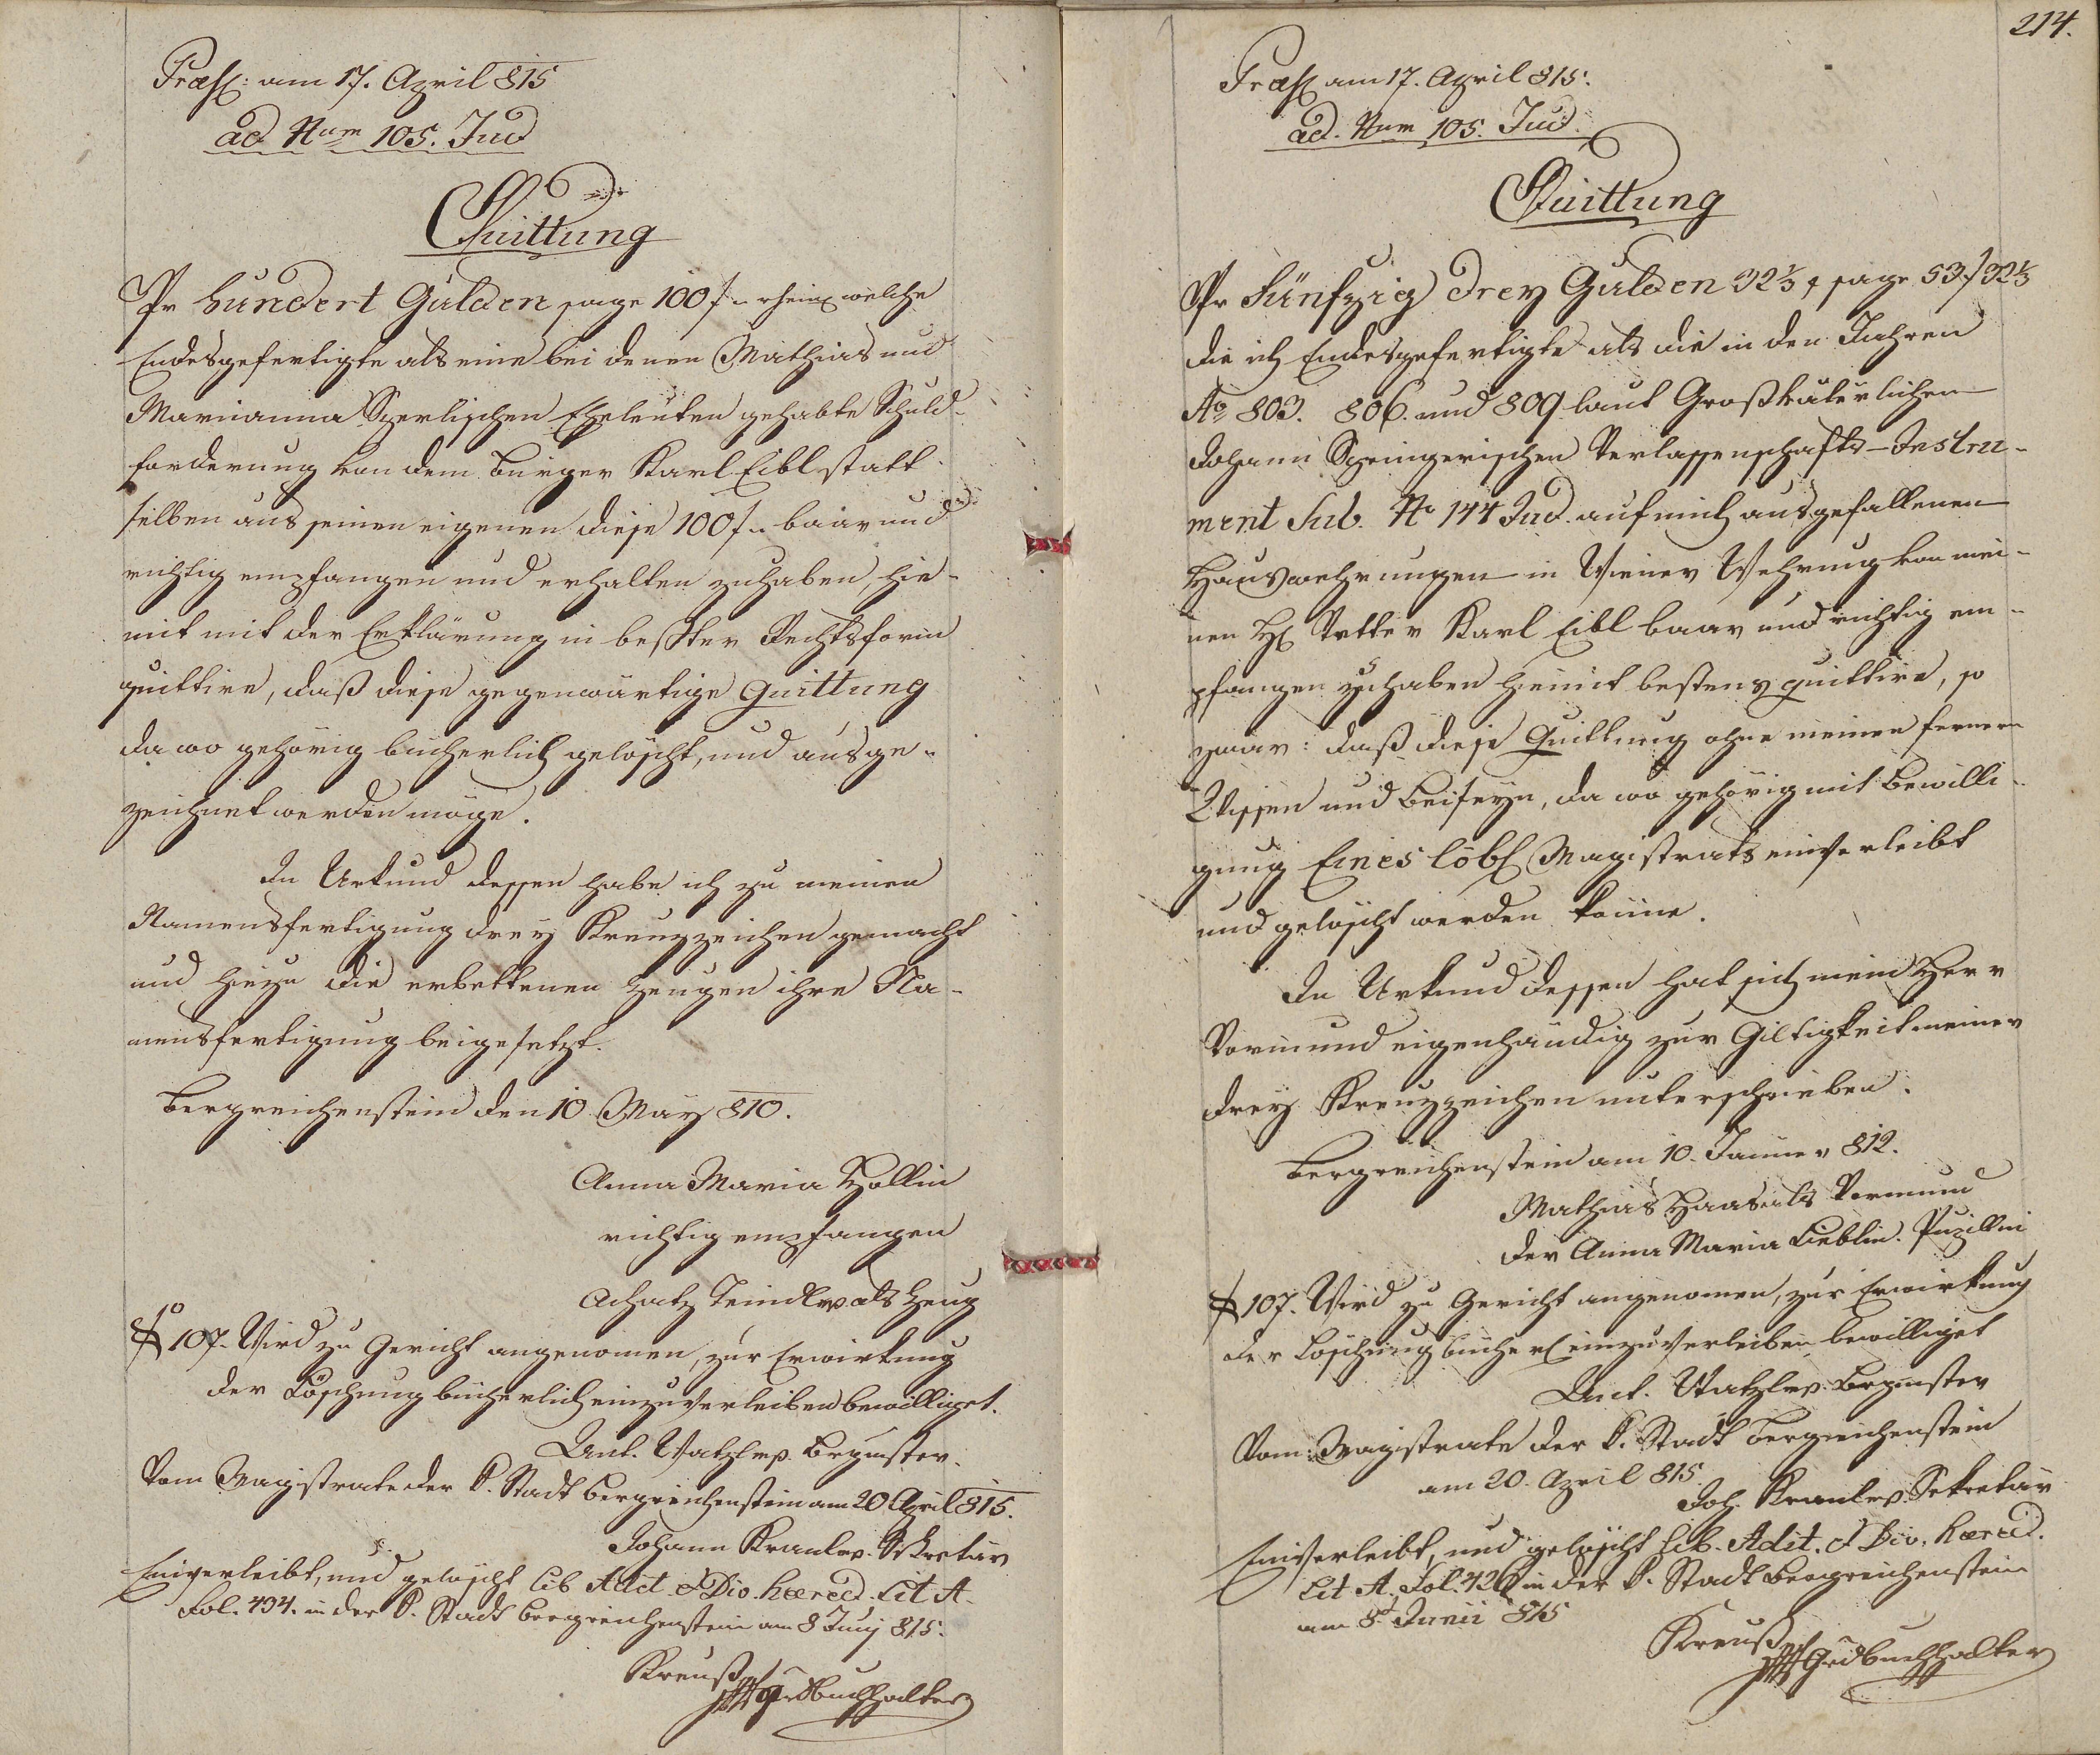 Præs: am 17. April 815
ad Num 105. Jud
Quittung
Pr Hundert Gulden sage 100 f rhein welche
Endesgefertigte als eine bei denen Mathias und
Marianna Sperlischen Eheleuten gehabte Schuld-
forderung von dem Bürger Karl Eibl statt
selben aus seinen eigenen diese 100 f baar und
richtig empfangen und erhalten zuhaben, hie-
mit mit der Erklärung in bester Rechtsform
quittire, daß diese gegenwärtige Quittung
da wo gehörig bücherlich gelöscht, und ausge-
zeichnet werden möge.
In Urkund dessen habe ich zu meinen
Namensfertigung drey Kreuzzeichen gemacht
und hiezu die erbettenen Zeugen ihre Na-
mensfertigung beigesetzt.
Bergreichenstein den 10 May 810.
Anna Maria Hollin
richtig empfangen
Achatz als Zeug
107. Wird zu Gericht angenomen, zur Erwirkung
der Löschung bücherlich einzuverleiben bewilliget.
Ant. Watzl mp. Brgmster.
Vom Magistrate der k. Stadt Bergreichenstein am 20 April 815.
Johann Sekretär
Einverleibt, und gelöscht Lib Adit. & Div. hæred. Lit A.
Fol. 434. in der k. Stadt Bergreichenstein am 8 Junij 815.
Kreuß Grdbuchhalter
214.
Præs am 17. April 815.
ad. Num 105. Jud.
Quittung
Pr Fünfzig drey Gulden 32 1/3 x sage 53 f 32 1/3
die ich Endesgefertigte als die in den Jahren
Ao 803. 806. und 809 laut Großväterlichen
Johann Springerischen Verlassenschafts-Instru-
ment Sub. No 144 Jud. auf mich ausgefallenen
Hauswehrungen in Wiener Wehrung von mei-
nen H Vetter Karl Eibl baar und richtig em-
pfangen zu haben hiemit bestens quittire, so
zwar: daß diese Quittung ohne meinen fernern
Wissen und Beiseyn, da wo gehörig mit Bewilli-
gung Eines löbl Magistrats einverleibt
und gelöscht werden könne.
In Urkund dessen hat sich mein Herr
Vormund eigenhändig zur Giltigkeit meiner
drey Kreuzzeichen unterschrieben.
Bergreichenstein am 10. Jänner 812.
Mathias Haas als Vormund
der Anna Maria Lieblin. Pupillin
107. Wird zu Gericht angenomen, zur Erwirkung
der Löschung bücherl einzuverleiben bewilliget
Ant. Watzl mp. Brgmster
Vom Magistrate der k. Stadt Bergreichenstein
am 20. April 815
Joh. Sekretär
Einverleibt, und gelöscht Lib. Adit. & Div. hæred.
Lit A. Fol. 426 in der k. Stadt Bergreichenstein
am 8t Junii 815
Kreuß Grdbuchhalter